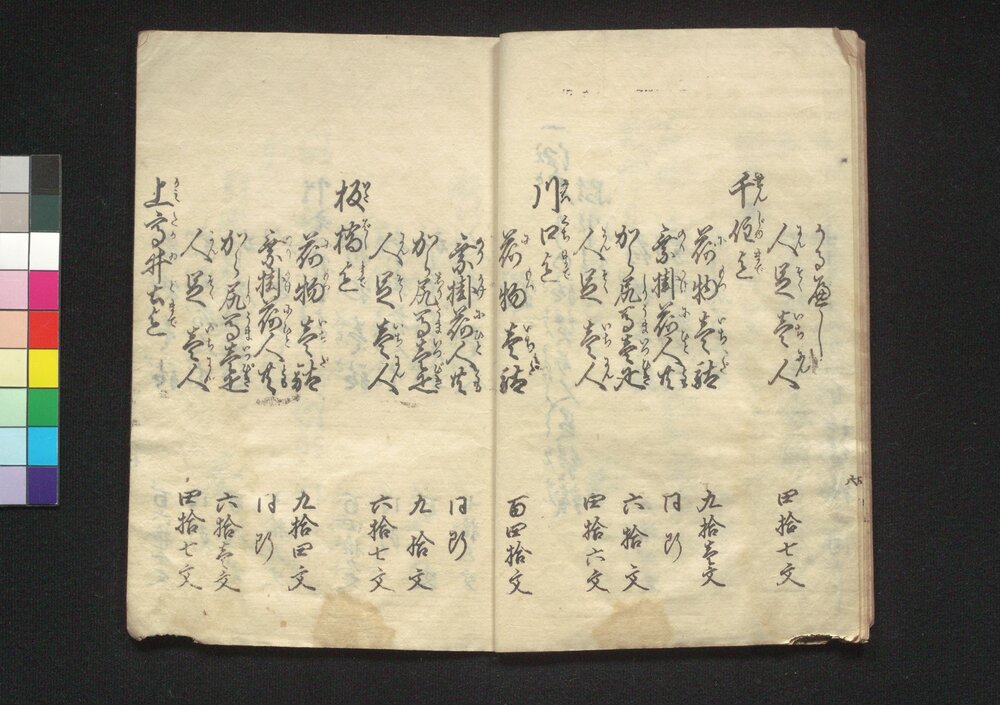 から尻
人足壱人 四拾七文
千住迄
荷物壱駄 九拾壱文
乗掛荷人共 同断
から尻馬壱疋 六拾文
人足壱人 四拾六文
川口迄
荷物壱駄 百四拾文
乗掛荷人共 同断
から尻馬壱疋 九拾文
人足壱人 六拾七文
板橋迄
荷物壱駄 九拾四文
乗掛荷人共 同断
から尻馬壱疋 六拾壱文
人足壱人 四拾七文
上高井戸迄